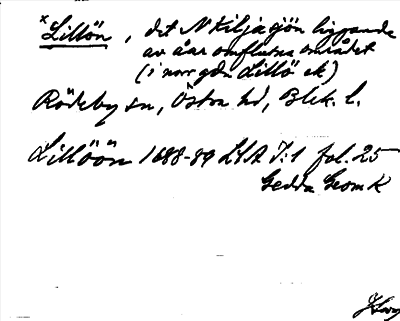 × Lillön, det N Kiljasjön liggande
av åar omflutna området
(i norr gdn Lillö ek)
Rödeby sn, Östra hd, Blek. l.
Lillöön 1688-89 LSA I:1 fol. 25
Gedda Geom K